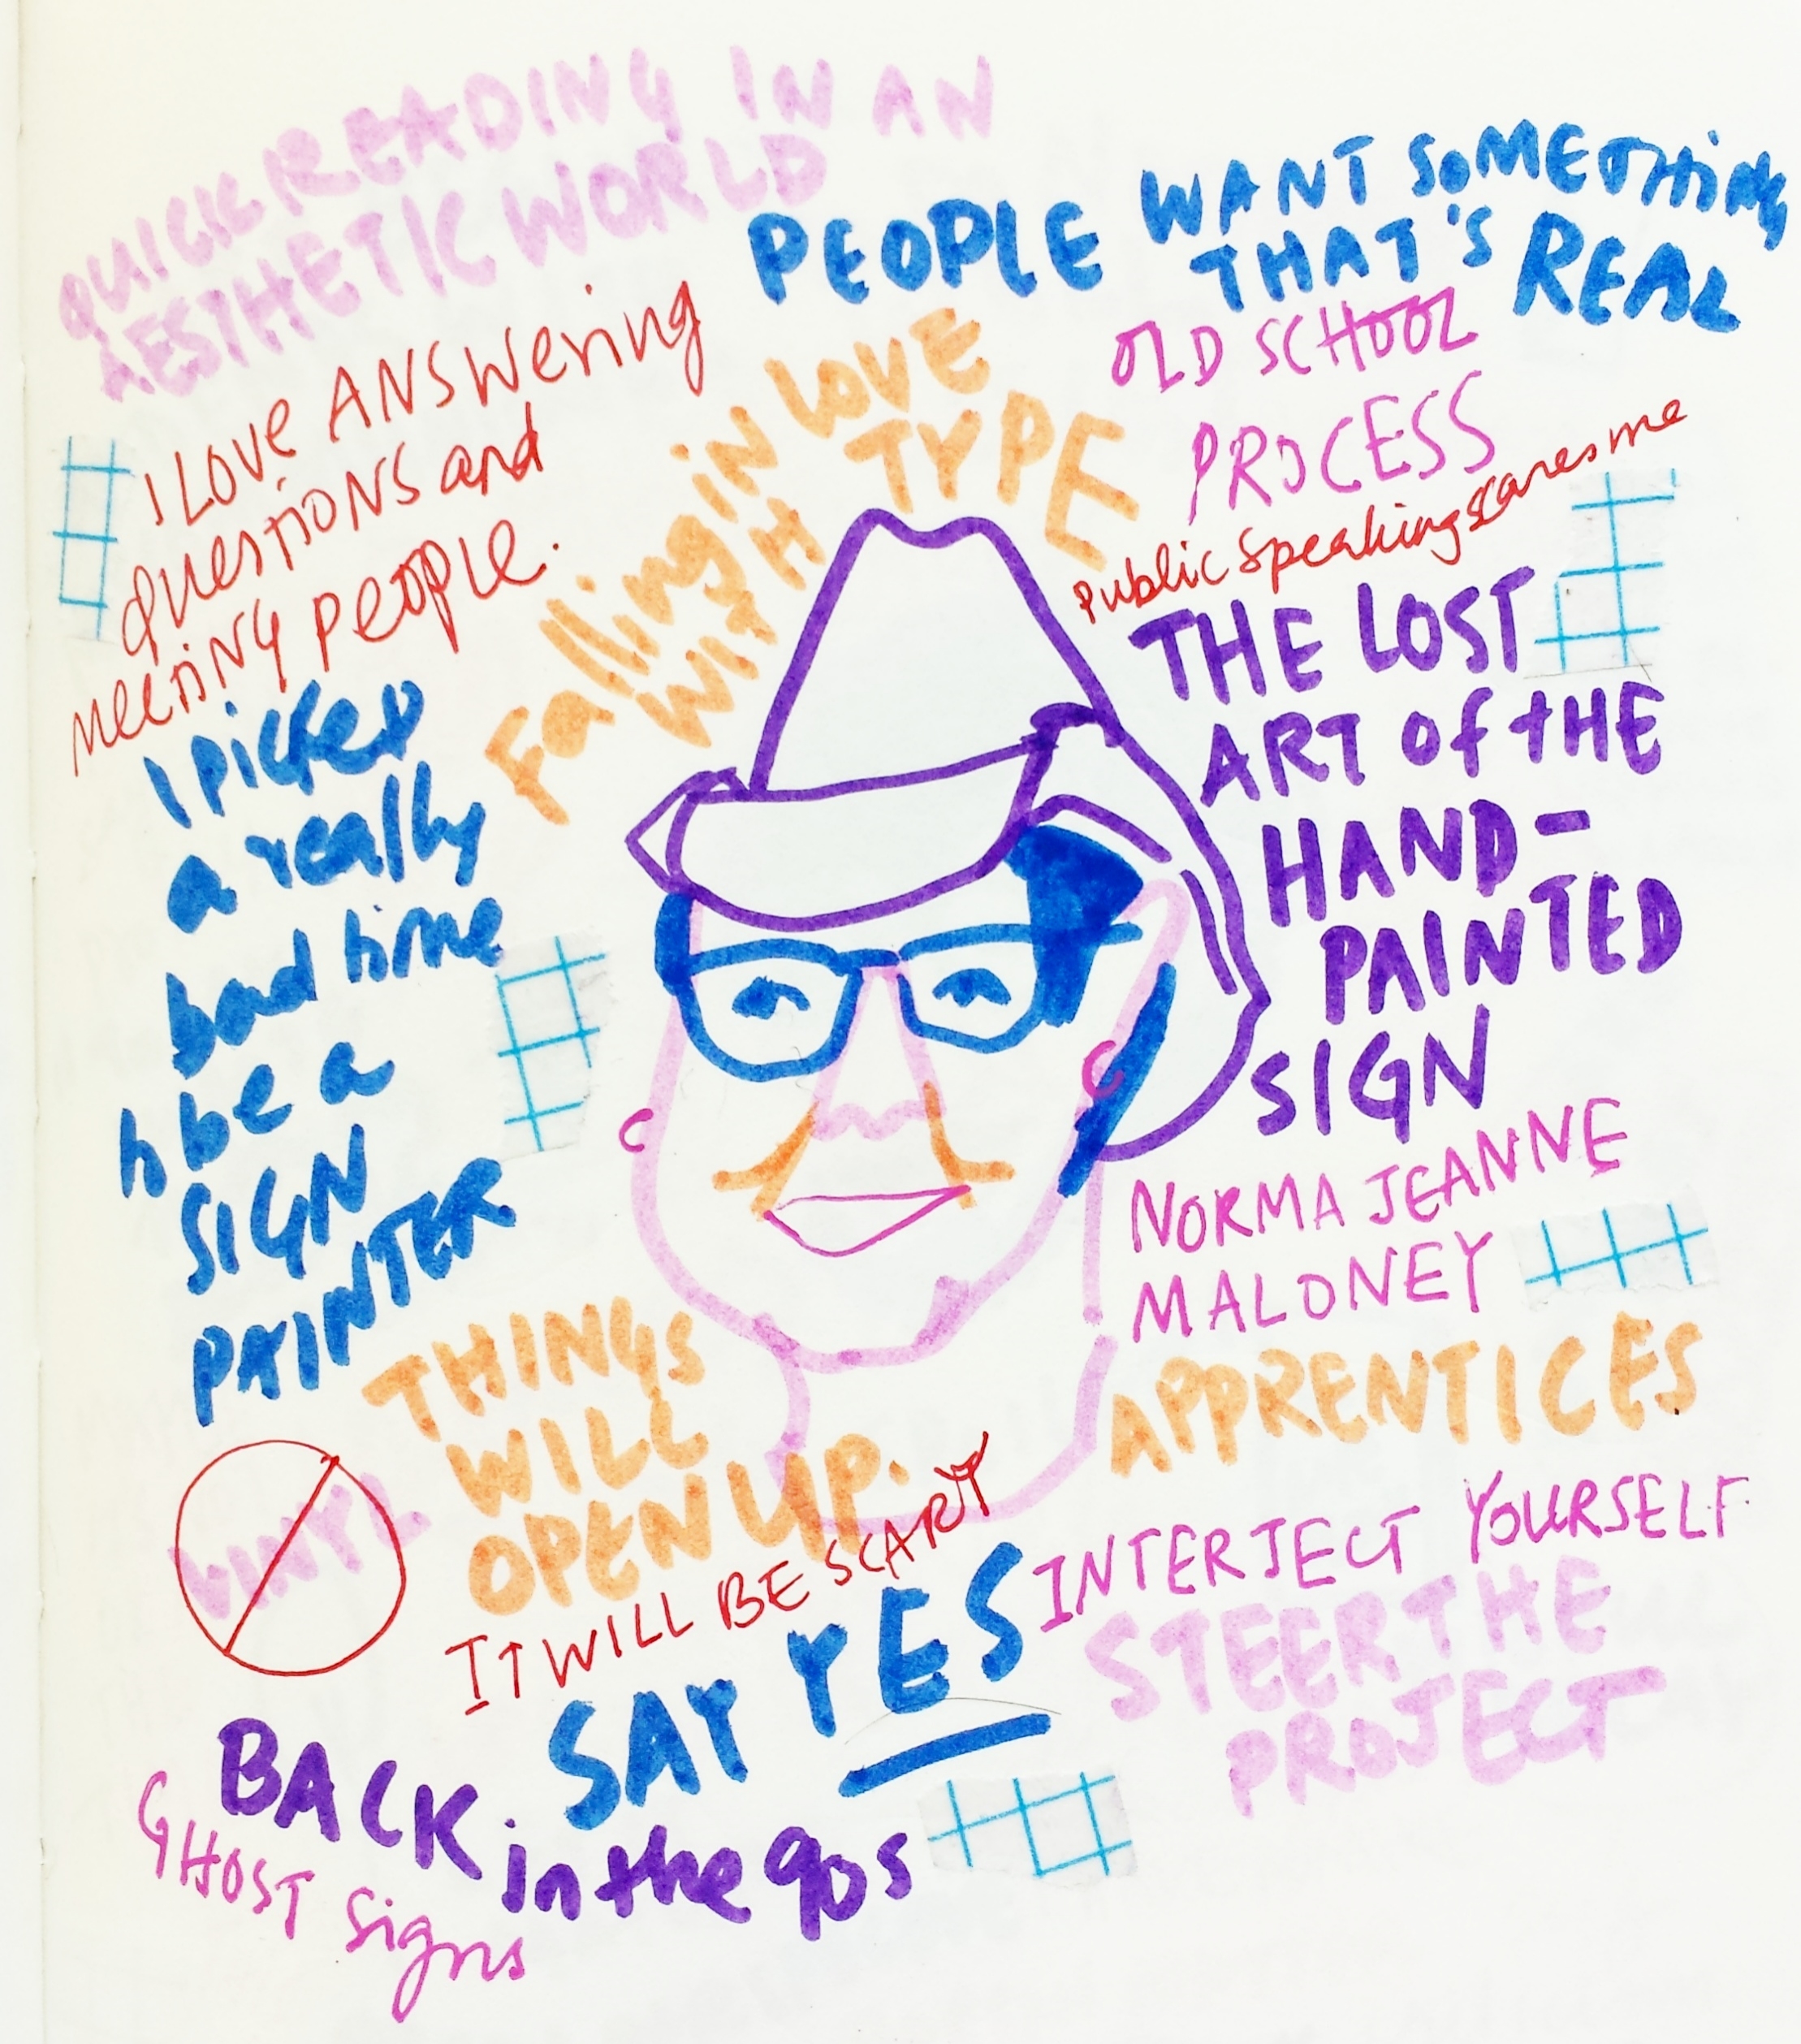 QUICK READING IN AN
AESTHETIC WORLD
PEOPLE WANT SOMETHING
THAT'S REAL
I LOVE ANSWering
questions and
meeting people.
Falling in LOVE
WITH TYPE
OLD SCHOOL
PROCESS
Public Speaking scares me
THE LOST
ART Of tHE
HAND-
PAINTED
SIGN
I picked
a really
bad time
to be a
SIGN
PAINTER
NORMA JEANNE
MALONEY
THINGS
WILL
OPEN UP.
IT WILL BE SCARY
VINYL
APPRENTICES
INTERJECT YOURSELF
STEER THE
PROJECT
SAY YES
BACK in the 90s
GHOST Signs